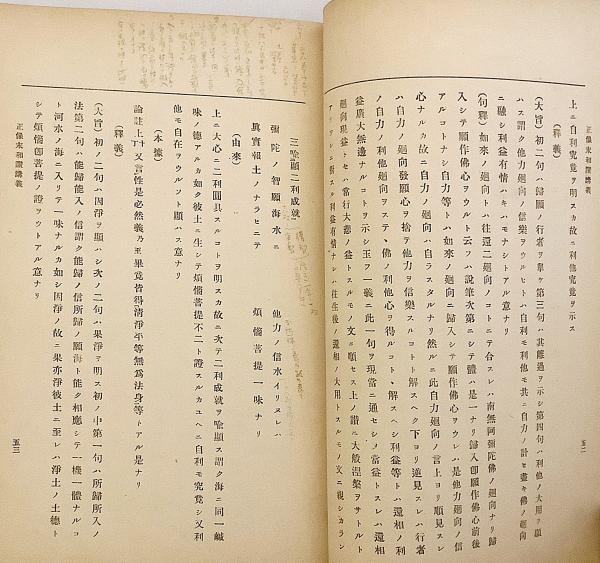 上ニ自利究竟ヲ明スカ故ニ利他究竟ヲ示ス
(釋義)
(大旨)初二句ハ歸願ノ行者ヲ擧ケ第三句ハ其離過ヲ示シ第四句ハ利他ノ大用ヲ顯
ハス謂ク他力廻向ノ信樂ヲウルヒトハ自利モ利他モ共ニ自力ノ計ヒ盡キ佛ノ廻向
ニ融シ利益有情ハキハモナシトアル意ナリ
(句釋)如來ノ廻向トハ往還二廻向ノコトニテ合スレハ南無阿彌陀佛ノ廻向ナリ歸
入シテ願作佛心ヲウルト云フハ説筆次第ニシテ體ハ是一ナリ歸入即願作佛心前後
アルコトナシ自力等トハ如來ノ廻向ニ歸入シテ願作佛心ヲウルハ是他力廻向ノ信
心ナルカ故ニ自力ノ廻向ハ自ラスタルナリ然ルニ此自力廻向ノ言上ヨリ順見スレ
ハ自力ノ廻向發願心ヲ捨テ他力ヲ信樂スルコトト解スヘク下ヨリ逆見スレハ行者
ノ自力ノ利他ヲステ、佛ノ利他心ヲ得ルコト、解スヘシ利益等トハ還相ノ利
益廣大無邊ナルコトヲ示シ玉フ一義ニ此一句ヲ現當ニ通セシメ當益トスレハ還相
廻向現益トセハ常行大悲ノ益トスルモノ文ニ順セス上ノ讃ニ大般涅槃ヲサトルト
利益有情ナレハ往生後ノ還相ノ大用トスルモノ文ニ親シカラン
五二
正像末和讃講義
三喩顯二利成就
彌陀ノ智願海水ニ　他力ノ信水イリヌレハ
眞實報土ノナラヒニテ　煩惱菩提一味ナリ
(由來)
上ニ大心ニ二利圓具スルコトヲ明スカ故ニ次テ二利成就ヲ喩顯ス謂ク海ニ同一鹹
味ノ德アルカ如ク彼土ニ生シテ煩惱菩提不二ト證スルカユヘニ自利モ究竟シ又利
他モ自在ヲウルント顯ハス意ナリ
(本據)
論註上又言性是必然義乃至畢竟皆得清淨平等無爲法身等トアル是ナリ
(釋義)
(大旨)初ノ二句ハ因淨ヲ顯ハシ次ノ二句ハ果淨ヲ明ス初ノ中第一句ハ所歸所入ノ
法第二句ハ能歸能入ノ信謂ク能歸ノ信所歸ノ願海ト能ク相應シテ一機一體ナルコ
ト河水ノ海ニ入リテ一味ナルカ如シ因淨ノ故ニ果亦淨彼土ニ至レハ淨土ノ土德ト
シテ煩惱即菩提ノ證ヲウトアル意ナリ
正像末和讃講義
五三